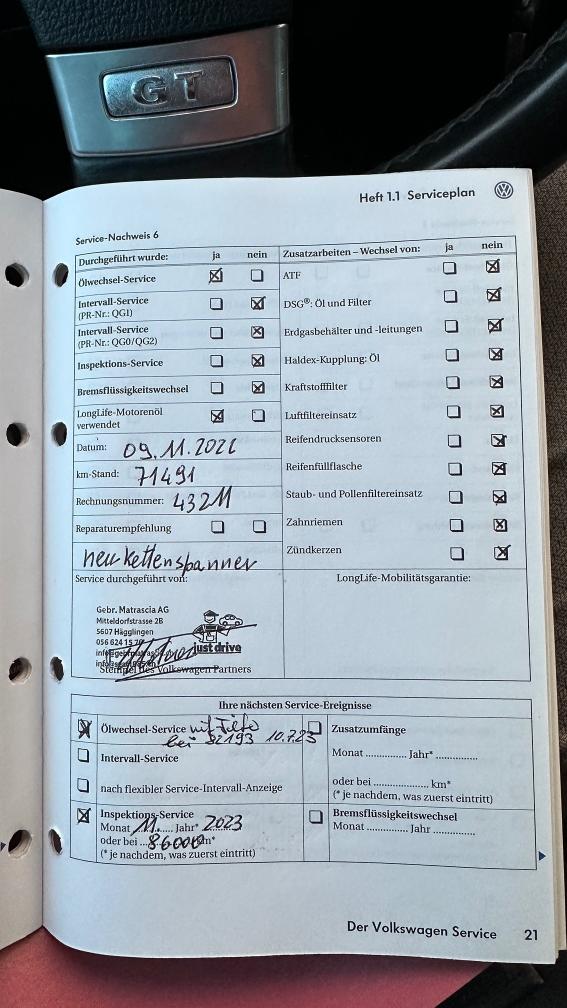 GT
Heft 1.1 Serviceplan
Service-Nachweis 6
Durchgeführt wurde: ja nein
Ölwechsel-Service
Intervall-Service
(PR-Nr.: QG1)
Intervall-Service
(PR-Nr.: QG0/QG2)
Inspektions-Service
Bremsflüssigkeitswechsel
LongLife-Motorenöl
verwendet
Datum: 09.11.2022
km-Stand: 71491
Rechnungsnummer: 43211
Reparaturempfehlung
neu kettenspanner
Zusatzarbeiten – Wechsel von: ja nein
ATF
DSG®: Öl und Filter
Erdgasbehälter und -leitungen
Haldex-Kupplung: Öl
Kraftstofffilter
Luftfiltereinsatz
Reifendrucksensoren
Reifenfüllflasche
Staub- und Pollenfiltereinsatz
Zahnriemen
Zündkerzen
Service durchgeführt von:
Gebr. Matrascia AG
Mitteldorfstrasse 2B
5607 Hägglingen
056 624 15
just drive
Stempel des Volkswagen Partners
LongLife-Mobilitätsgarantie:
Ihre nächsten Service-Ereignisse
Ölwechsel-Service mit
bei 82193 10.7.23
Intervall-Service
nach flexibler Service-Intervall-Anzeige
Inspektions-Service
Monat 11 Jahr* 2023
oder bei 86000 km*
(* je nachdem, was zuerst eintritt)
Zusatzumfänge
Monat .............. Jahr* ..............
oder bei .................. km*
(* je nachdem, was zuerst eintritt)
Bremsflüssigkeitswechsel
Monat .............. Jahr ..............
Der Volkswagen Service 21